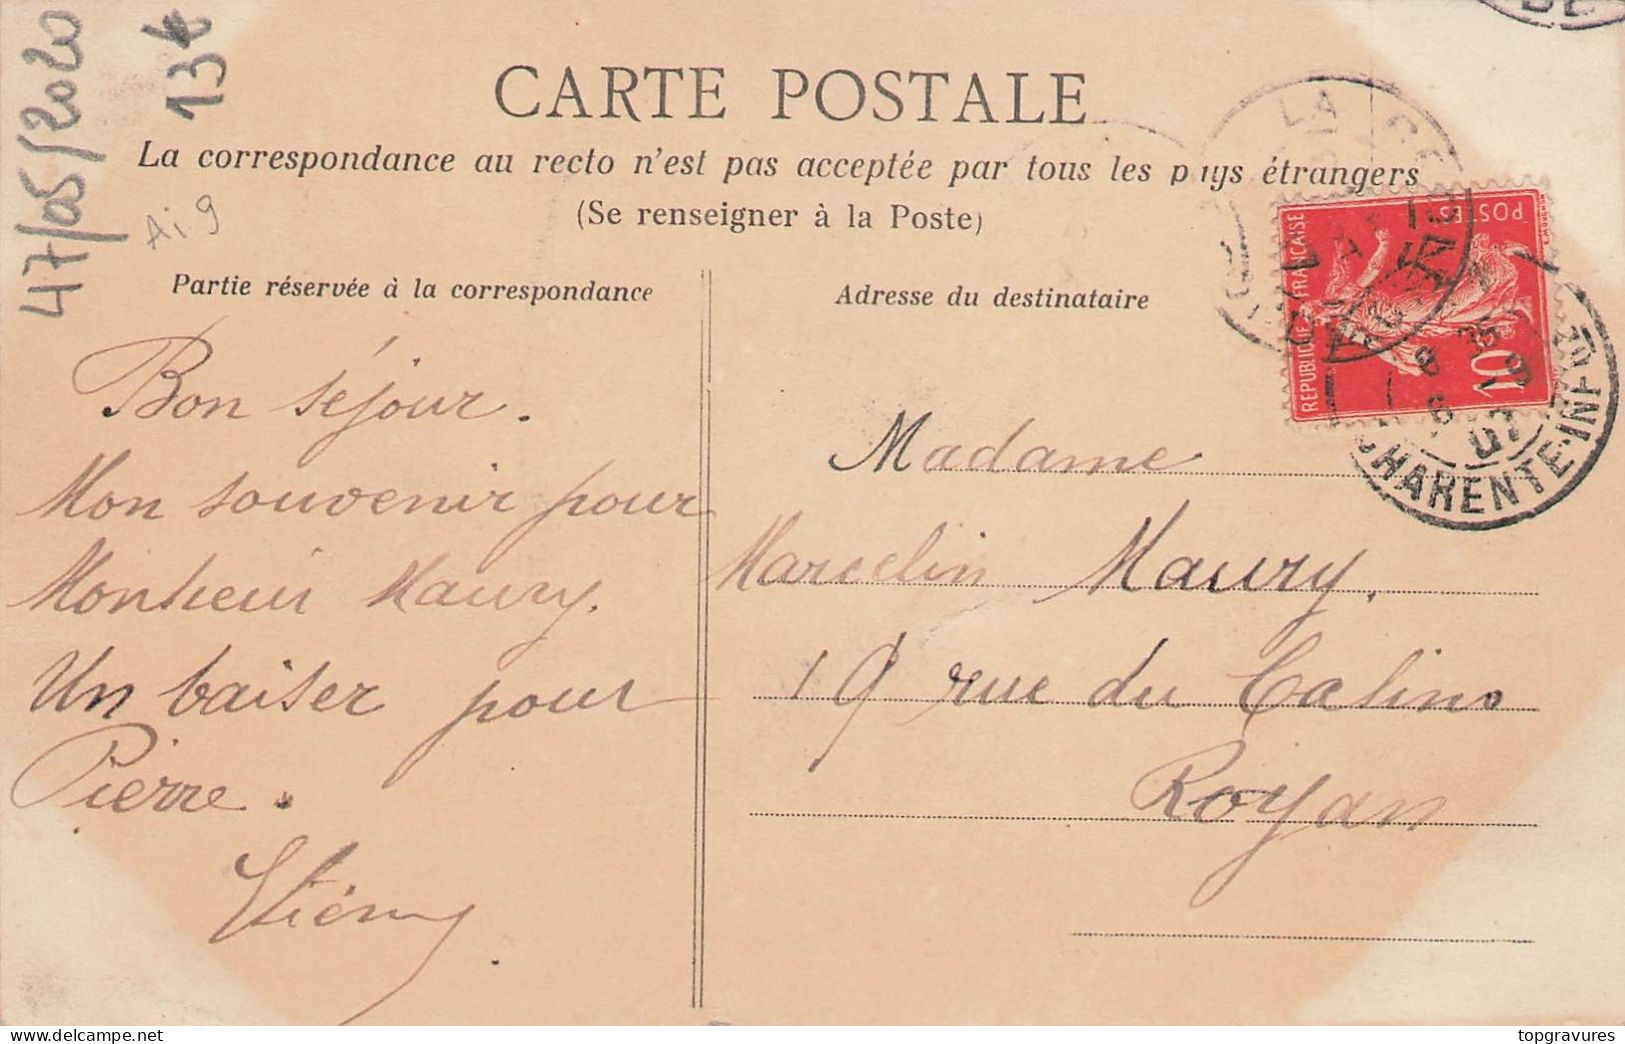 47/05/2020
13€
Ai9
CARTE POSTALE
La correspondance au recto n'est pas acceptée par tous les pays étrangers
(Se renseigner à la Poste)
Partie réservée à la correspondance
Adresse du destinataire
Bon séjour.
Mon souvenir pour
Monsieur Maury.
Un baiser pour
Pierre.
Madame
Marcelin Maury,
19 rue du
Royan
REPUBLIQUE FRANÇAISE
POSTES
10
LA
CHARENTE-INFRE
07
delcampe.net
topgravures